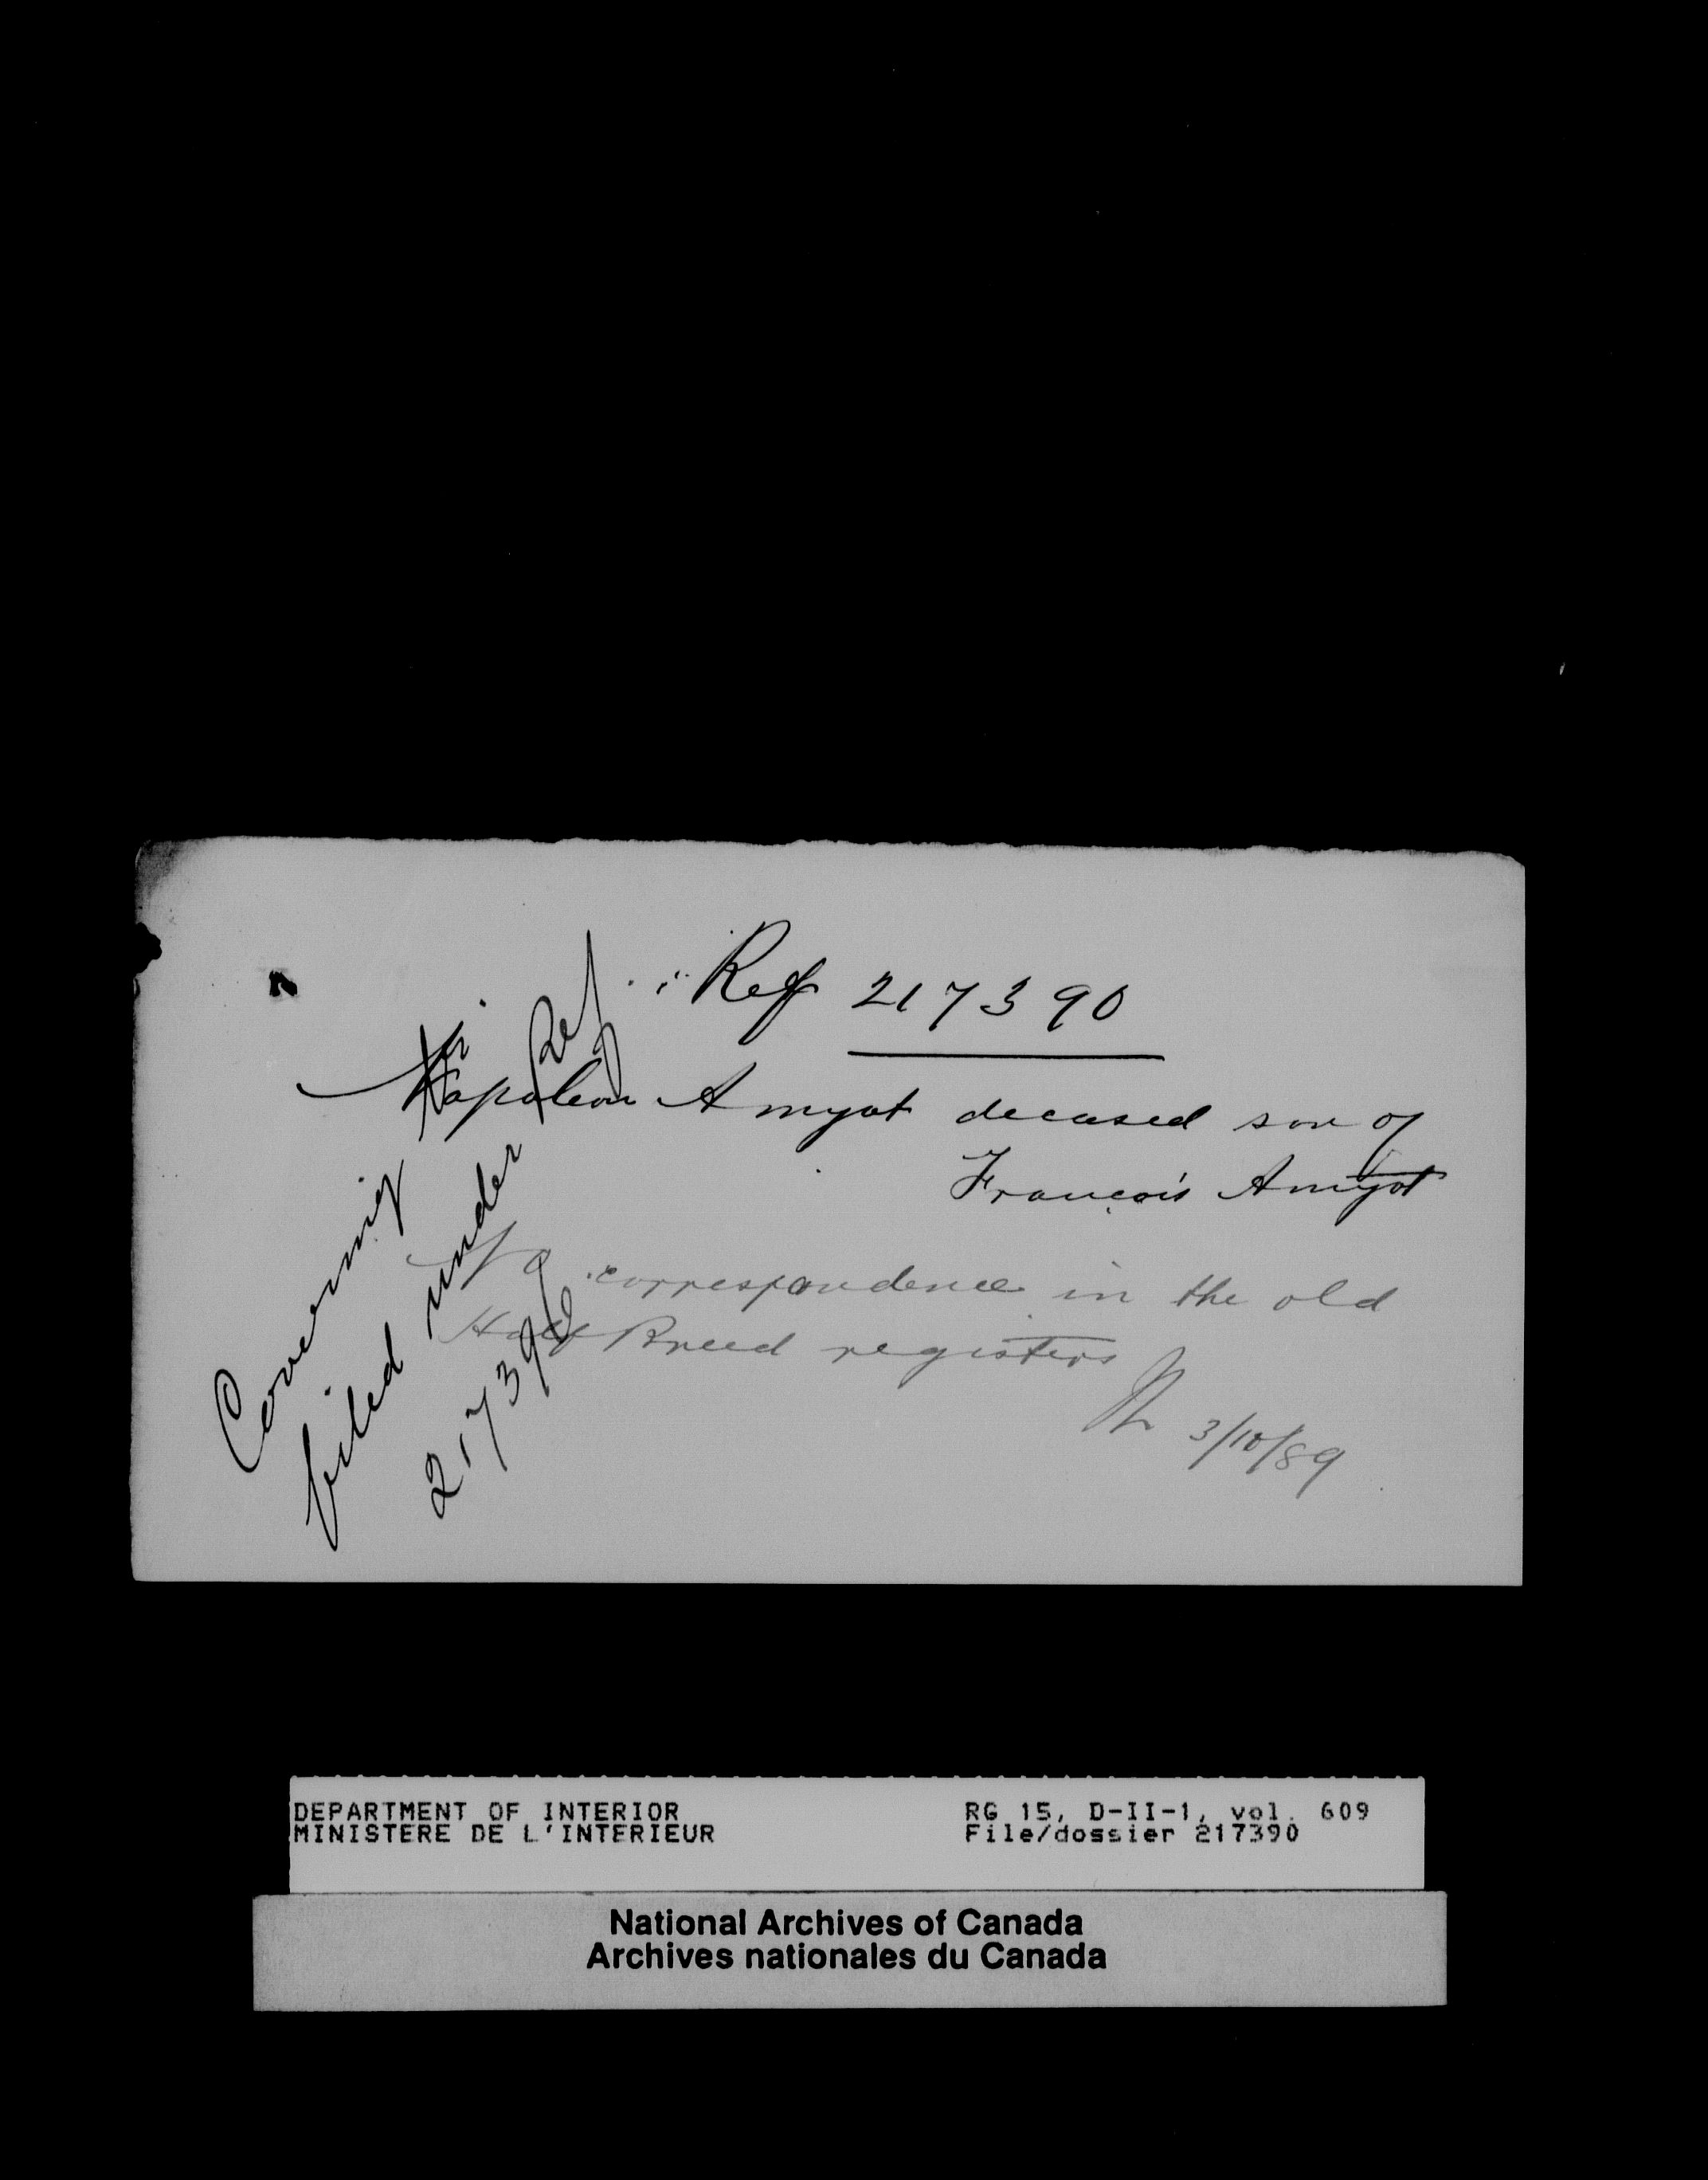 Ref 217390
Napoleon Amyot deceased son of
François Amyot
No correspondence in the old
Half Breed registers
3/10/89
Covering
filed under Ref
217390
DEPARTMENT OF INTERIOR
MINISTERE DE L'INTERIEUR
RG 15, D-II-1, vol. 609
File/dossier 217390
National Archives of Canada
Archives nationales du Canada